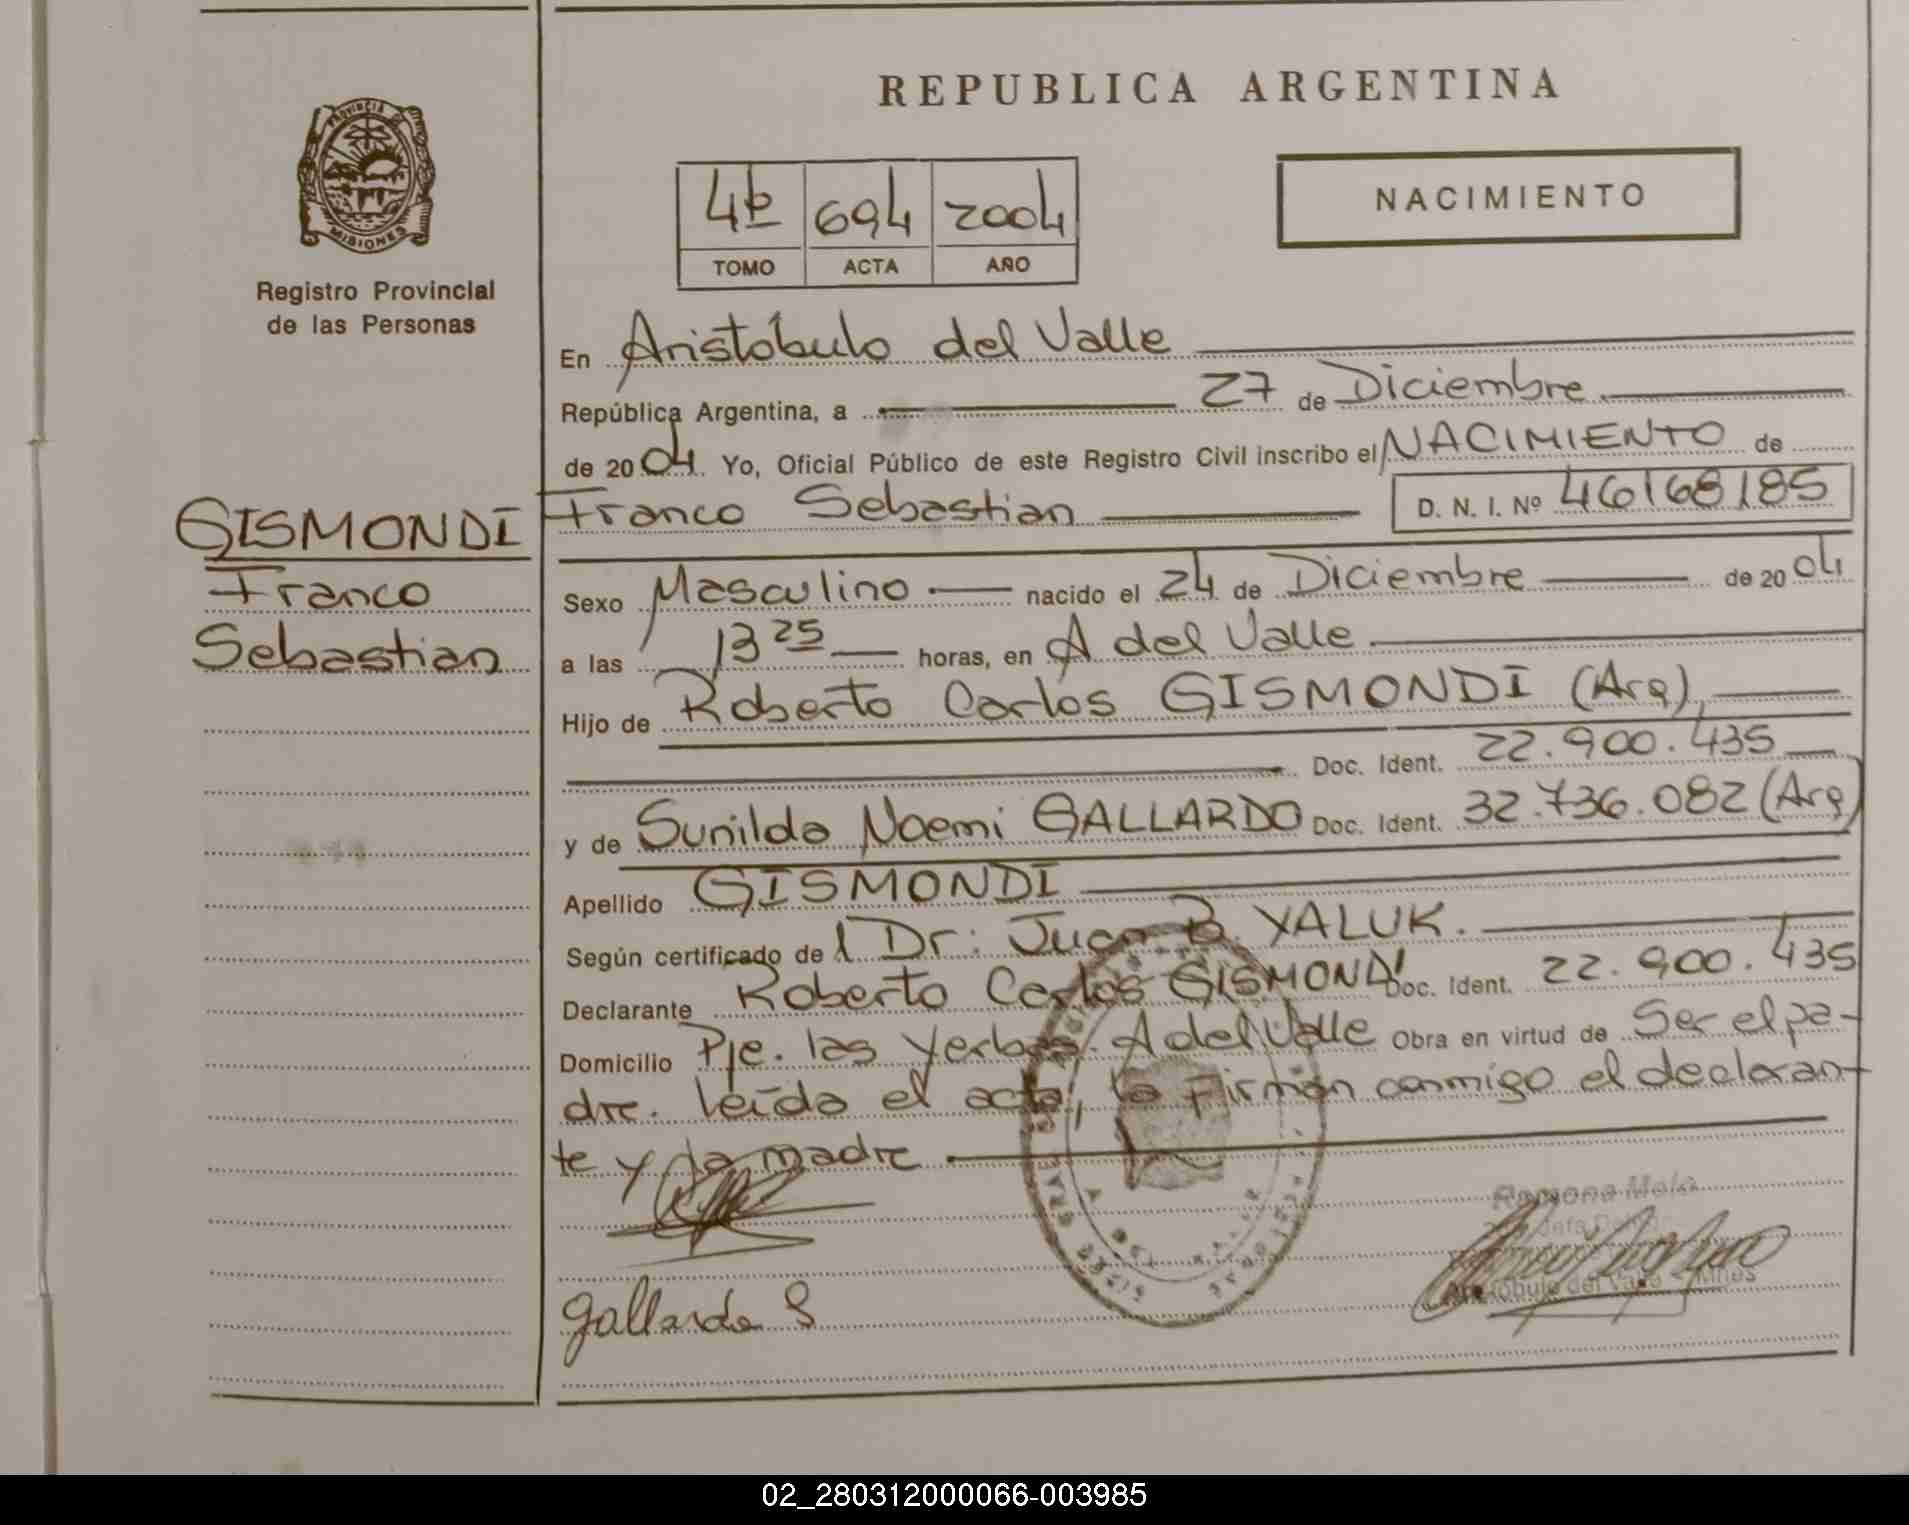 REPUBLICA ARGENTINA
PROVINCIA DE
MISIONES
Registro Provincial
de las Personas
4º 694 2004
TOMO ACTA AÑO
NACIMIENTO
En Aristóbulo del Valle
República Argentina, a 27 de Diciembre
de 2004. Yo, Oficial Público de este Registro Civil inscribo el NACIMIENTO de
Franco Sebastian D. N. I. Nº 46168185
GISMONDI
Franco
Sebastian
Sexo Masculino nacido el 24 de Diciembre de 2004
a las 13 25 horas, en A del Valle
Hijo de Roberto Carlos GISMONDI (Arg),
Doc. Ident. 22.900.435
y de Sunilda Noemi GALLARDO Doc. Ident. 32.736.082 (Arg)
Apellido GISMONDI
Según certificado del Dr: Juan B. YALUK.
Declarante Roberto Carlos GISMONDI Doc. Ident. 22.900.435
Domicilio Pje. las Yerbas. A del Valle Obra en virtud de Ser el pa-
dre. leída el acta, la Firman conmigo el declaran-
te y la madre
Ramona Melo
Gallardo S
Aristóbulo del Valle - Mnes
02_280312000066-003985